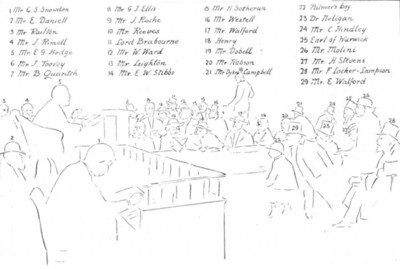 1 Mr G S Snowden
2 Mr E. Daniell
3 Mr Railton
4 Mr J. Rimell
5 Mr E S Hodge
6 Mr J. Toovey
7 Mr B. Quaritch
8 Mr G I Ellis
9 Mr J. Roche
10 Mr Reeves
11 Lord Brabourne
12 Mr W. Ward
13 Mr Leighton
14 Mr E W. Stibbs
15 Mr H Sotheran
16 Mr Westell
17 Mr Walford
18 Henry
19 Mr Dobell
20 Mr Robson
21 Mr Campbell
22 Palmer's boy
23 Dr Neligan
24 Mr C Hindley
25 Earl of Warwick
26 Mr Molini
27 Mr H Stevens
28 Mr F. Locker-Sampson
29 Mr E Walford